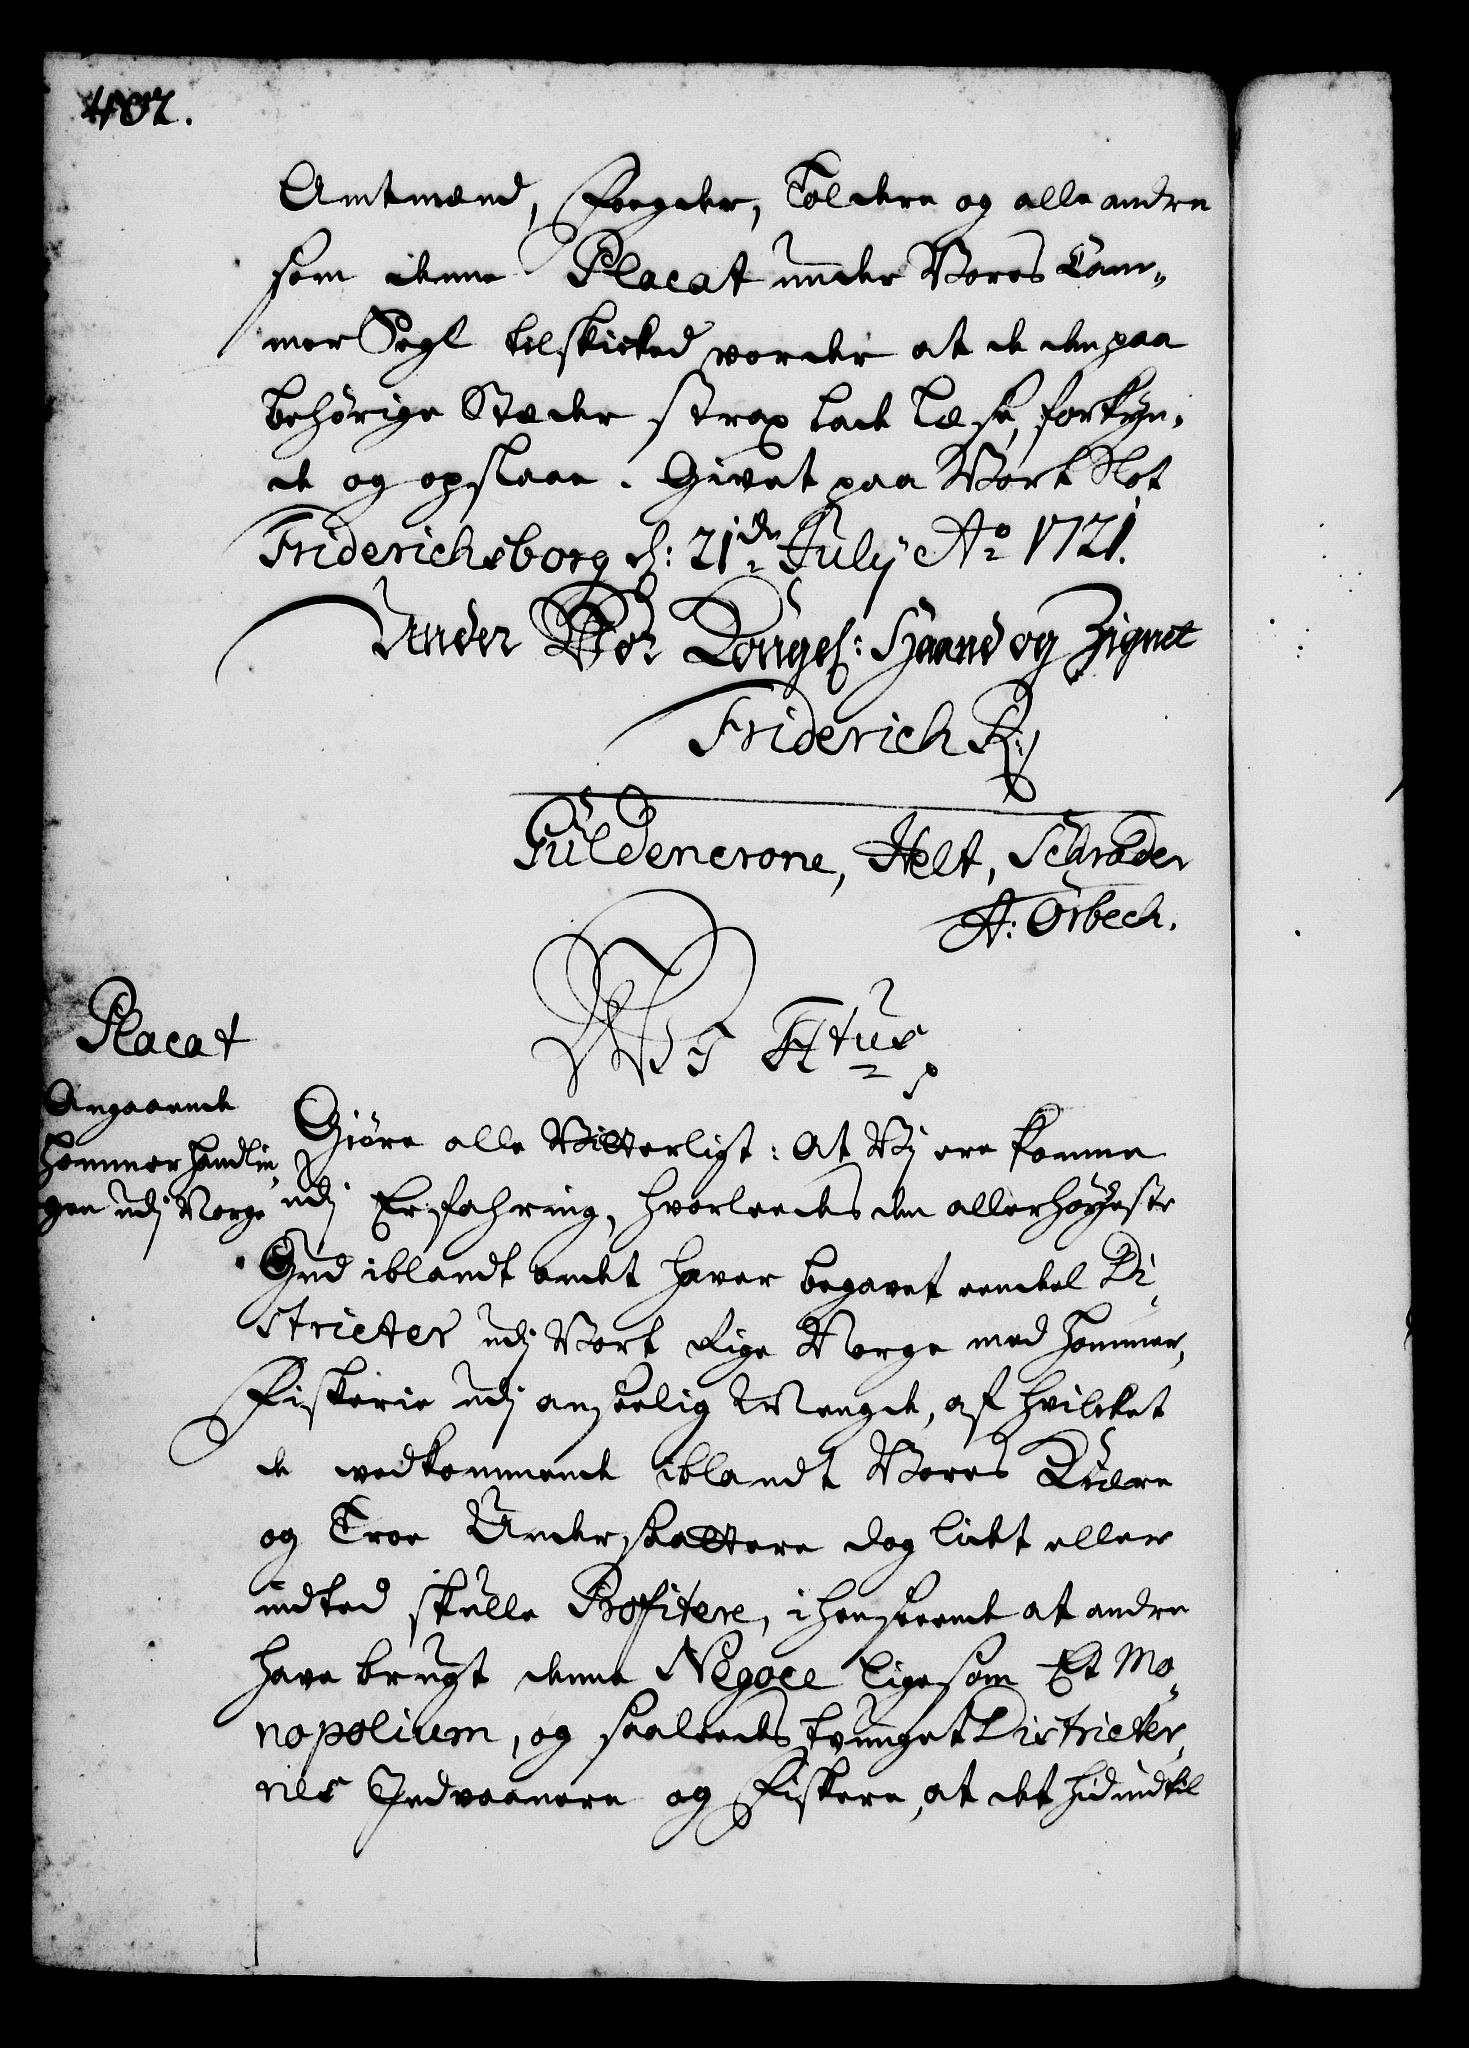 402.
Amtmænd, Foegder, Toldere og alle andre
som denne Placat under Vores Cam-
mer Segl tilskicked vorder at de den paa
behörige Stæder strax lade læse, forkyn-
de og opslaae. Givet paa Vort Slot
Friderichsborg d: 21de July Ao 1721.
Under Vor Kongel: Haand og Zignet
Friderich R:
Güldencrone, Helt, Schrøder
A: Örbech.
Placat
Angaaende
Hommerhandlin-
gen udj Norge
Wj F4tus
Giöre alle Vitterligt: At Vj ere komne
udj Erfahring, hvorleedes den allerhöyeste
Gud iblandt andet haver begavet eendel Di-
stricter udj Vort Rige Norge med Hommer-
Fiskerie udj anseelig Mengde, af hvilcket
de vedkommende iblandt Vores Kiære
og Troe Undersaattere dog lidet eller
indted skulle Profitere, i henseende at andre
have brugt denne Negoce ligesom Et Mo-
nopolium, og saaleedes tvunget Districter-
nes Indvaanere og Fiskere, at det hidindtil